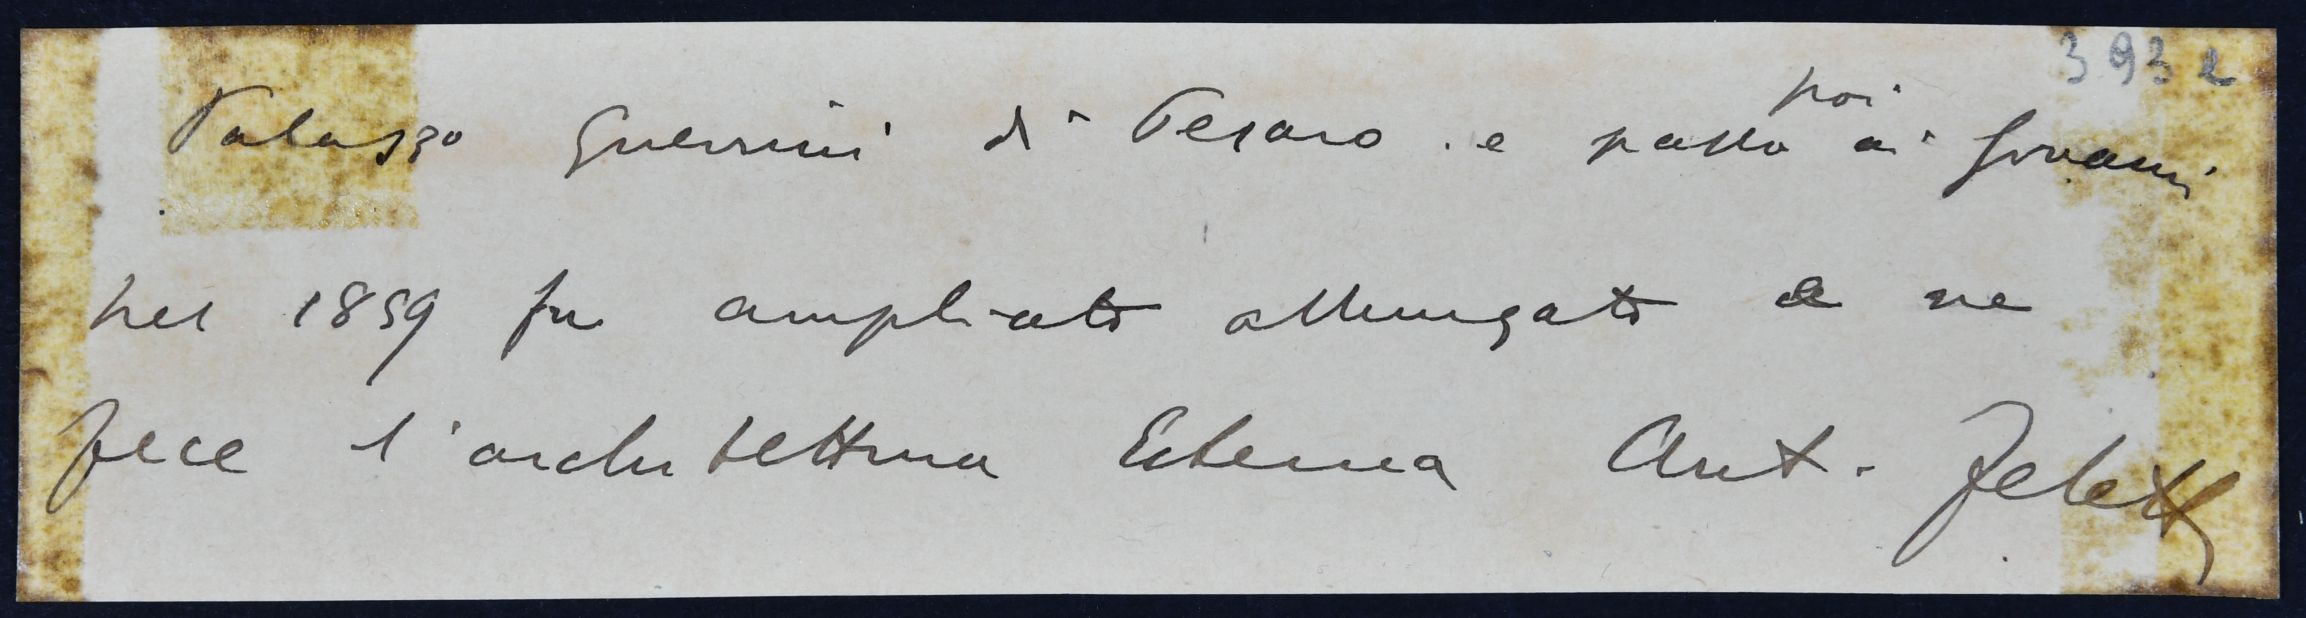 3932
Palazzo Guerrini di Pesaro . e passò poi ai Giovanni
nel 1859 fu ampliato allungato e ne
fece l'architettura Esterna Ant. Feletti